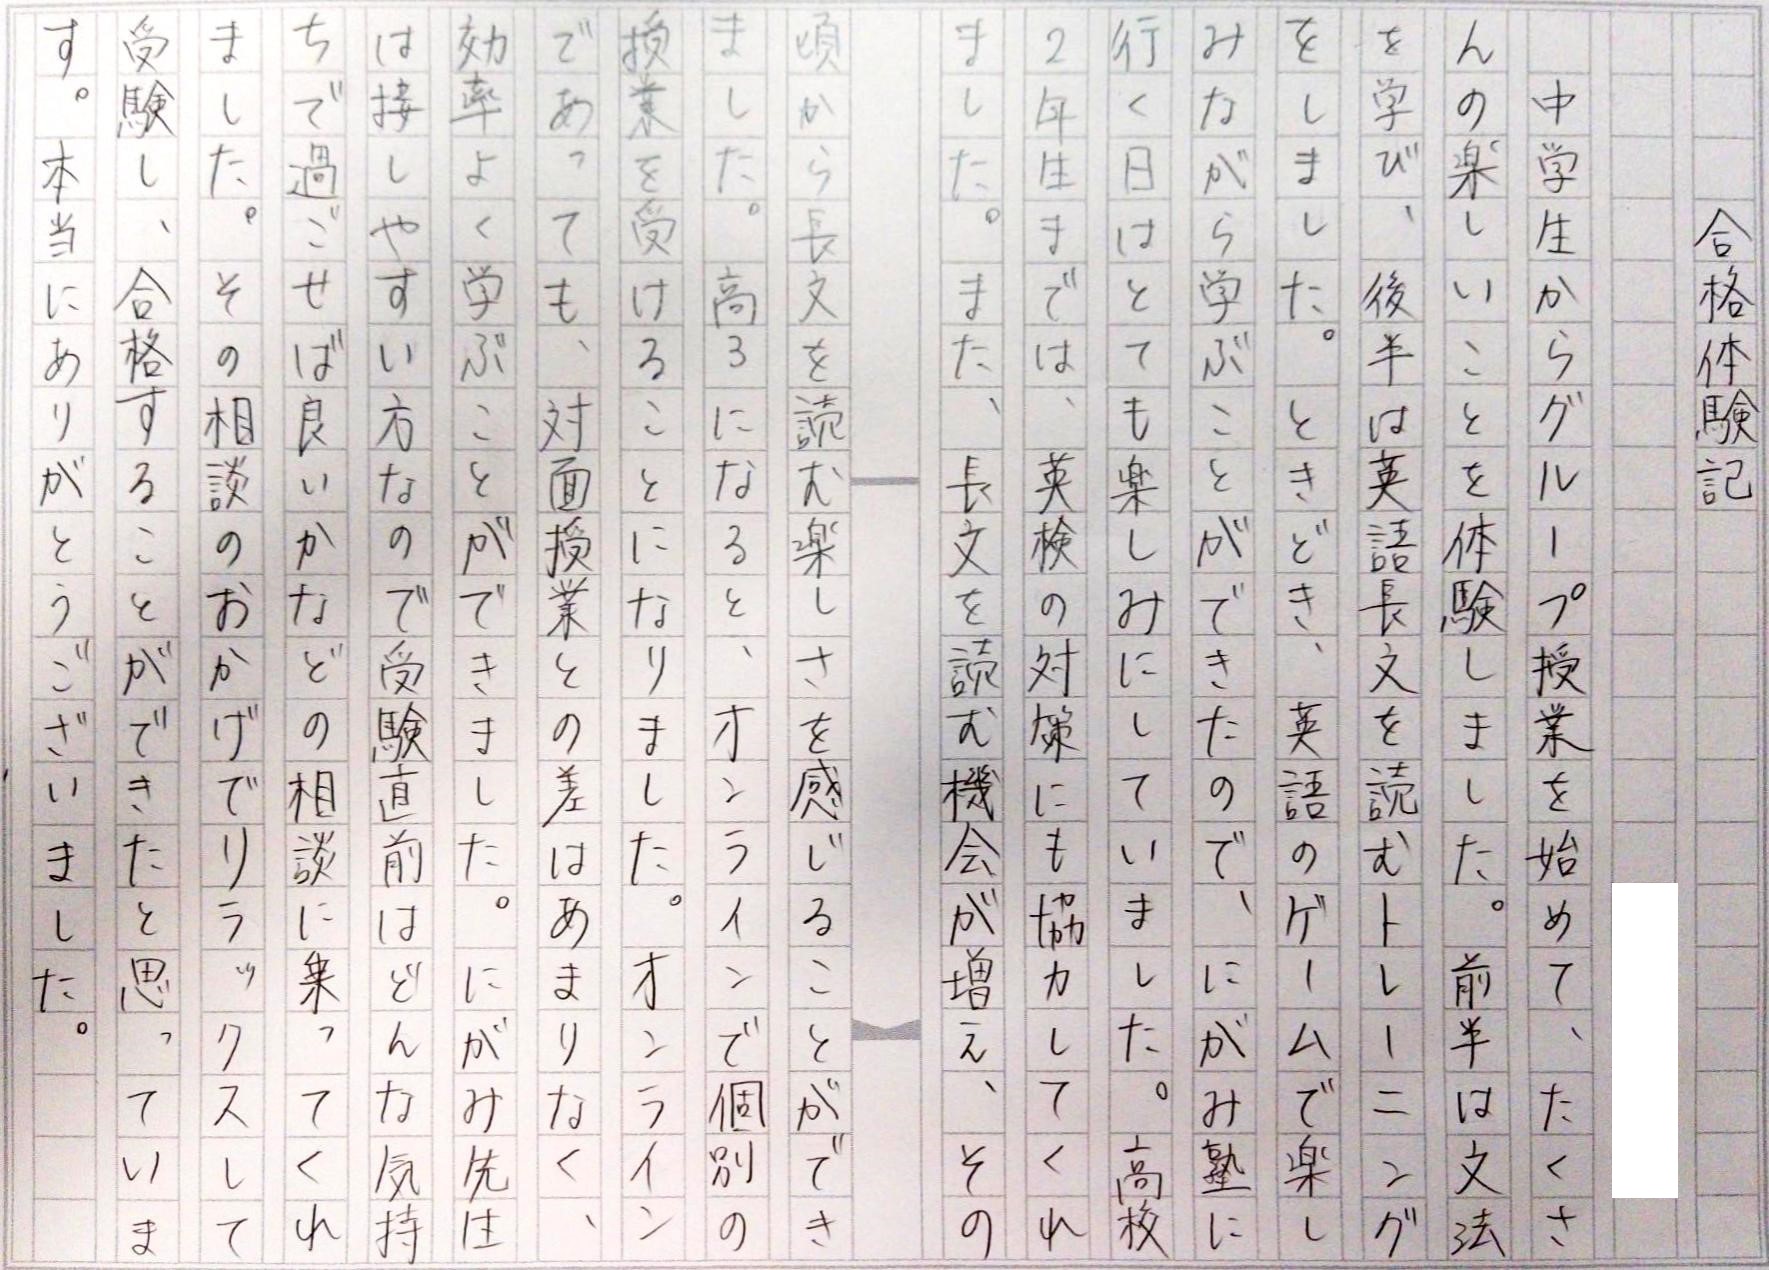 合格体験記
中学生からグループ授業を始めて、たくさ
んの楽しいことを体験しました。前半は文法
を学び、後半は英語長文を読むトレーニング
をしました。ときどき、英語のゲームで楽し
みながら学ぶことができたので、にがみ塾に
行く日はとても楽しみにしていました。高校
2年生までは、英検の対策にも協力してくれ
ました。また、長文を読む機会が増え、その
頃から長文を読む楽しさを感じることができ
ました。高3になると、オンラインで個別の
授業を受けることになりました。オンライン
であっても、対面授業との差はあまりなく、
効率よく学ぶことができました。にがみ先生
は接しやすい方なので受験直前はどんな気持
ちで過ごせば良いかなどの相談に乗ってくれ
ました。その相談のおかげでリラックスして
受験し、合格することができたと思っていま
す。本当にありがとうございました。